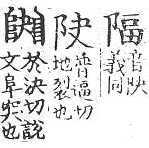 音映
義同
普逼切
地裂也
於決切說
文阜突也